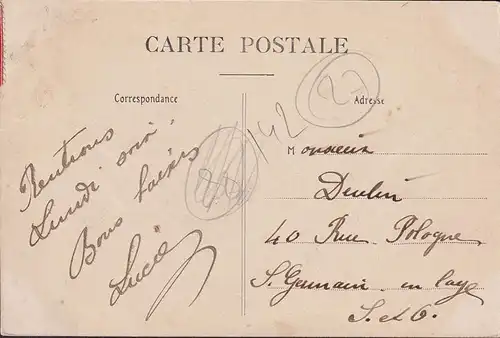 CARTE POSTALE
Correspondance
Adresse
27
142
Rentrons
Lundi soir
Bons baisers
Lucie
Monsieur
Deulin
40 Rue Pologne
S. Germain en laye
S. et O.